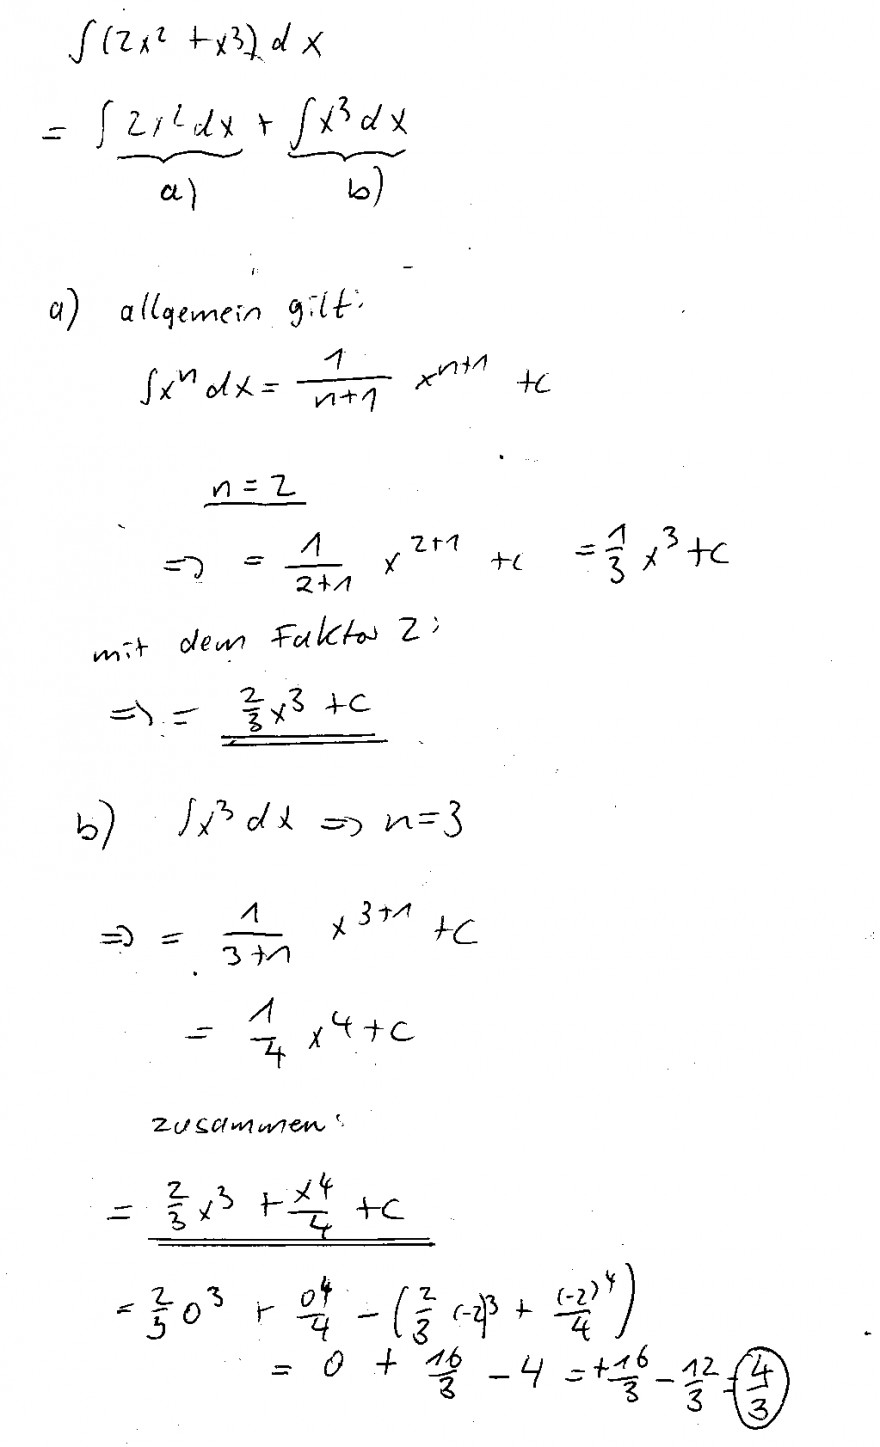 ∫(2x² + x³) dx
= ∫ 2x² dx + ∫ x³ dx
a) b)
a) allgemein gilt:
∫xⁿ dx = 1/(n+1) xⁿ⁺¹ + c
n = 2
=> = 1/(2+1) x²⁺¹ + c = 1/3 x³ + c
mit dem Faktor 2:
=> = 2/3 x³ + c
b) ∫x³ dx => n = 3
=> = 1/(3+1) x³⁺¹ + c
= 1/4 x⁴ + c
zusammen:
= 2/3 x³ + x⁴/4 + c
= 2/3 0³ + 0⁴/4 - (2/3 (-2)³ + (-2)⁴/4)
= 0 + 16/3 - 4 = +16/3 - 12/3 = 4/3